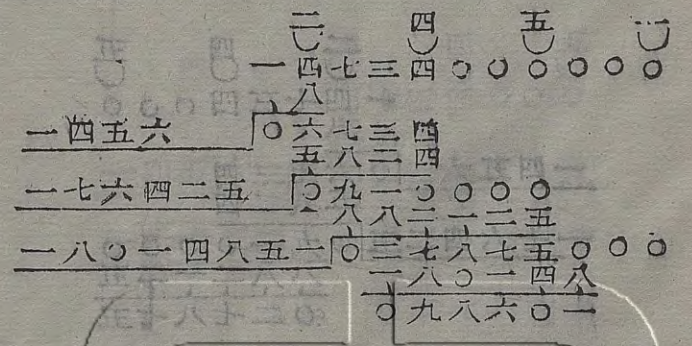 二 四 五 一
一四七三四〇〇〇〇〇〇
八
一四五六 〇六七三四
五八二四
一七六四二五 〇九一〇〇〇〇
八八二一二五
一八〇一四八五一 〇三七八七五〇〇〇
一八〇一四八
〇九八六〇一